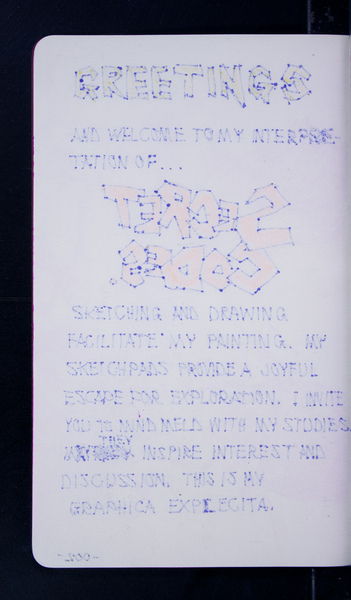 GREETINGS
AND WELCOME TO MY INTERPRE-
TATION OF...
SECRET
CODES.
SKETCHING AND DRAWING
FACILITATE MY PAINTING. MY
SKETCHPADS PROVIDE A JOYFUL
ESCAPE FOR EXPLORATION. I INVITE
YOU TO MIND MELD WITH MY STUDIES.
THEY
INSPIRE INTEREST AND
DISCUSSION. THIS IS MY
GRAPHICA EXPLECITA.